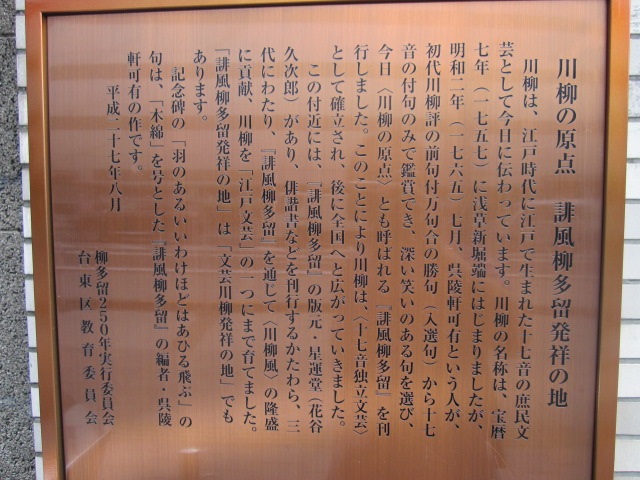 川柳の原点　誹風柳多留発祥の地
川柳は、江戸時代に江戸で生まれた十七音の庶民文
芸として今日に伝わっています。川柳の名称は、宝暦
七年（一七五七）に浅草新堀端にはじまりましたが、
明和二年（一七六五）七月、呉陵軒可有という人が、
初代川柳評の前句付万句合の勝句（入選句）から十七
音の付句のみで鑑賞でき、深い笑いのある句を選び、
今日〈川柳の原点〉とも呼ばれる『誹風柳多留』を刊
行しました。このことにより川柳は、〈十七音独立文芸〉
として確立され、後に全国へと広がっていきました。
この付近には、『誹風柳多留』の版元・星運堂（花谷
久次郎）があり、俳諧書などを刊行するかたわら、三
代にわたり、『誹風柳多留』を通じて〈川柳風〉の隆盛
に貢献、川柳を「江戸文芸」の一つにまで育てました。
「誹風柳多留発祥の地」は「文芸川柳発祥の地」でも
あります。
記念碑の「羽のあるいいわけほどはあひる飛ぶ」の
句は、「木綿」を号とした『誹風柳多留』の編者・呉陵
軒可有の作です。
平成二十七年八月
柳多留250年実行委員会
台東区教育委員会